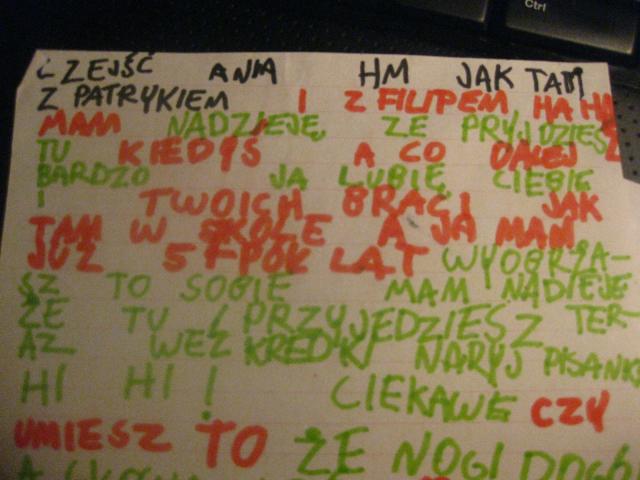 Ctrl
CZEJŚĆ ANIA HM JAK TAM
Z PATRYKIEM I Z FILIPEM HA HA
MAM NADZIEJĘ ZE PRYJDZIES
TU KIEDYŚ A CO DALEJ
BARDZO JA LUBIĘ CIEBIE
I TWOICH BRACI JAK
TAM W SKOLE A JA MAM
JUŻ 5 I PÓŁ LAT WYOBRZA-
SZ TO SOBIE MAM NADIEJĘ
ŻE TU PRZYJEDZIESZ TER-
AZ WEŹ KREDKI NARYJ PISANK
HI HI! CIEKAWE CZY
UMIESZ TO ŻE NOGI DOGÓ